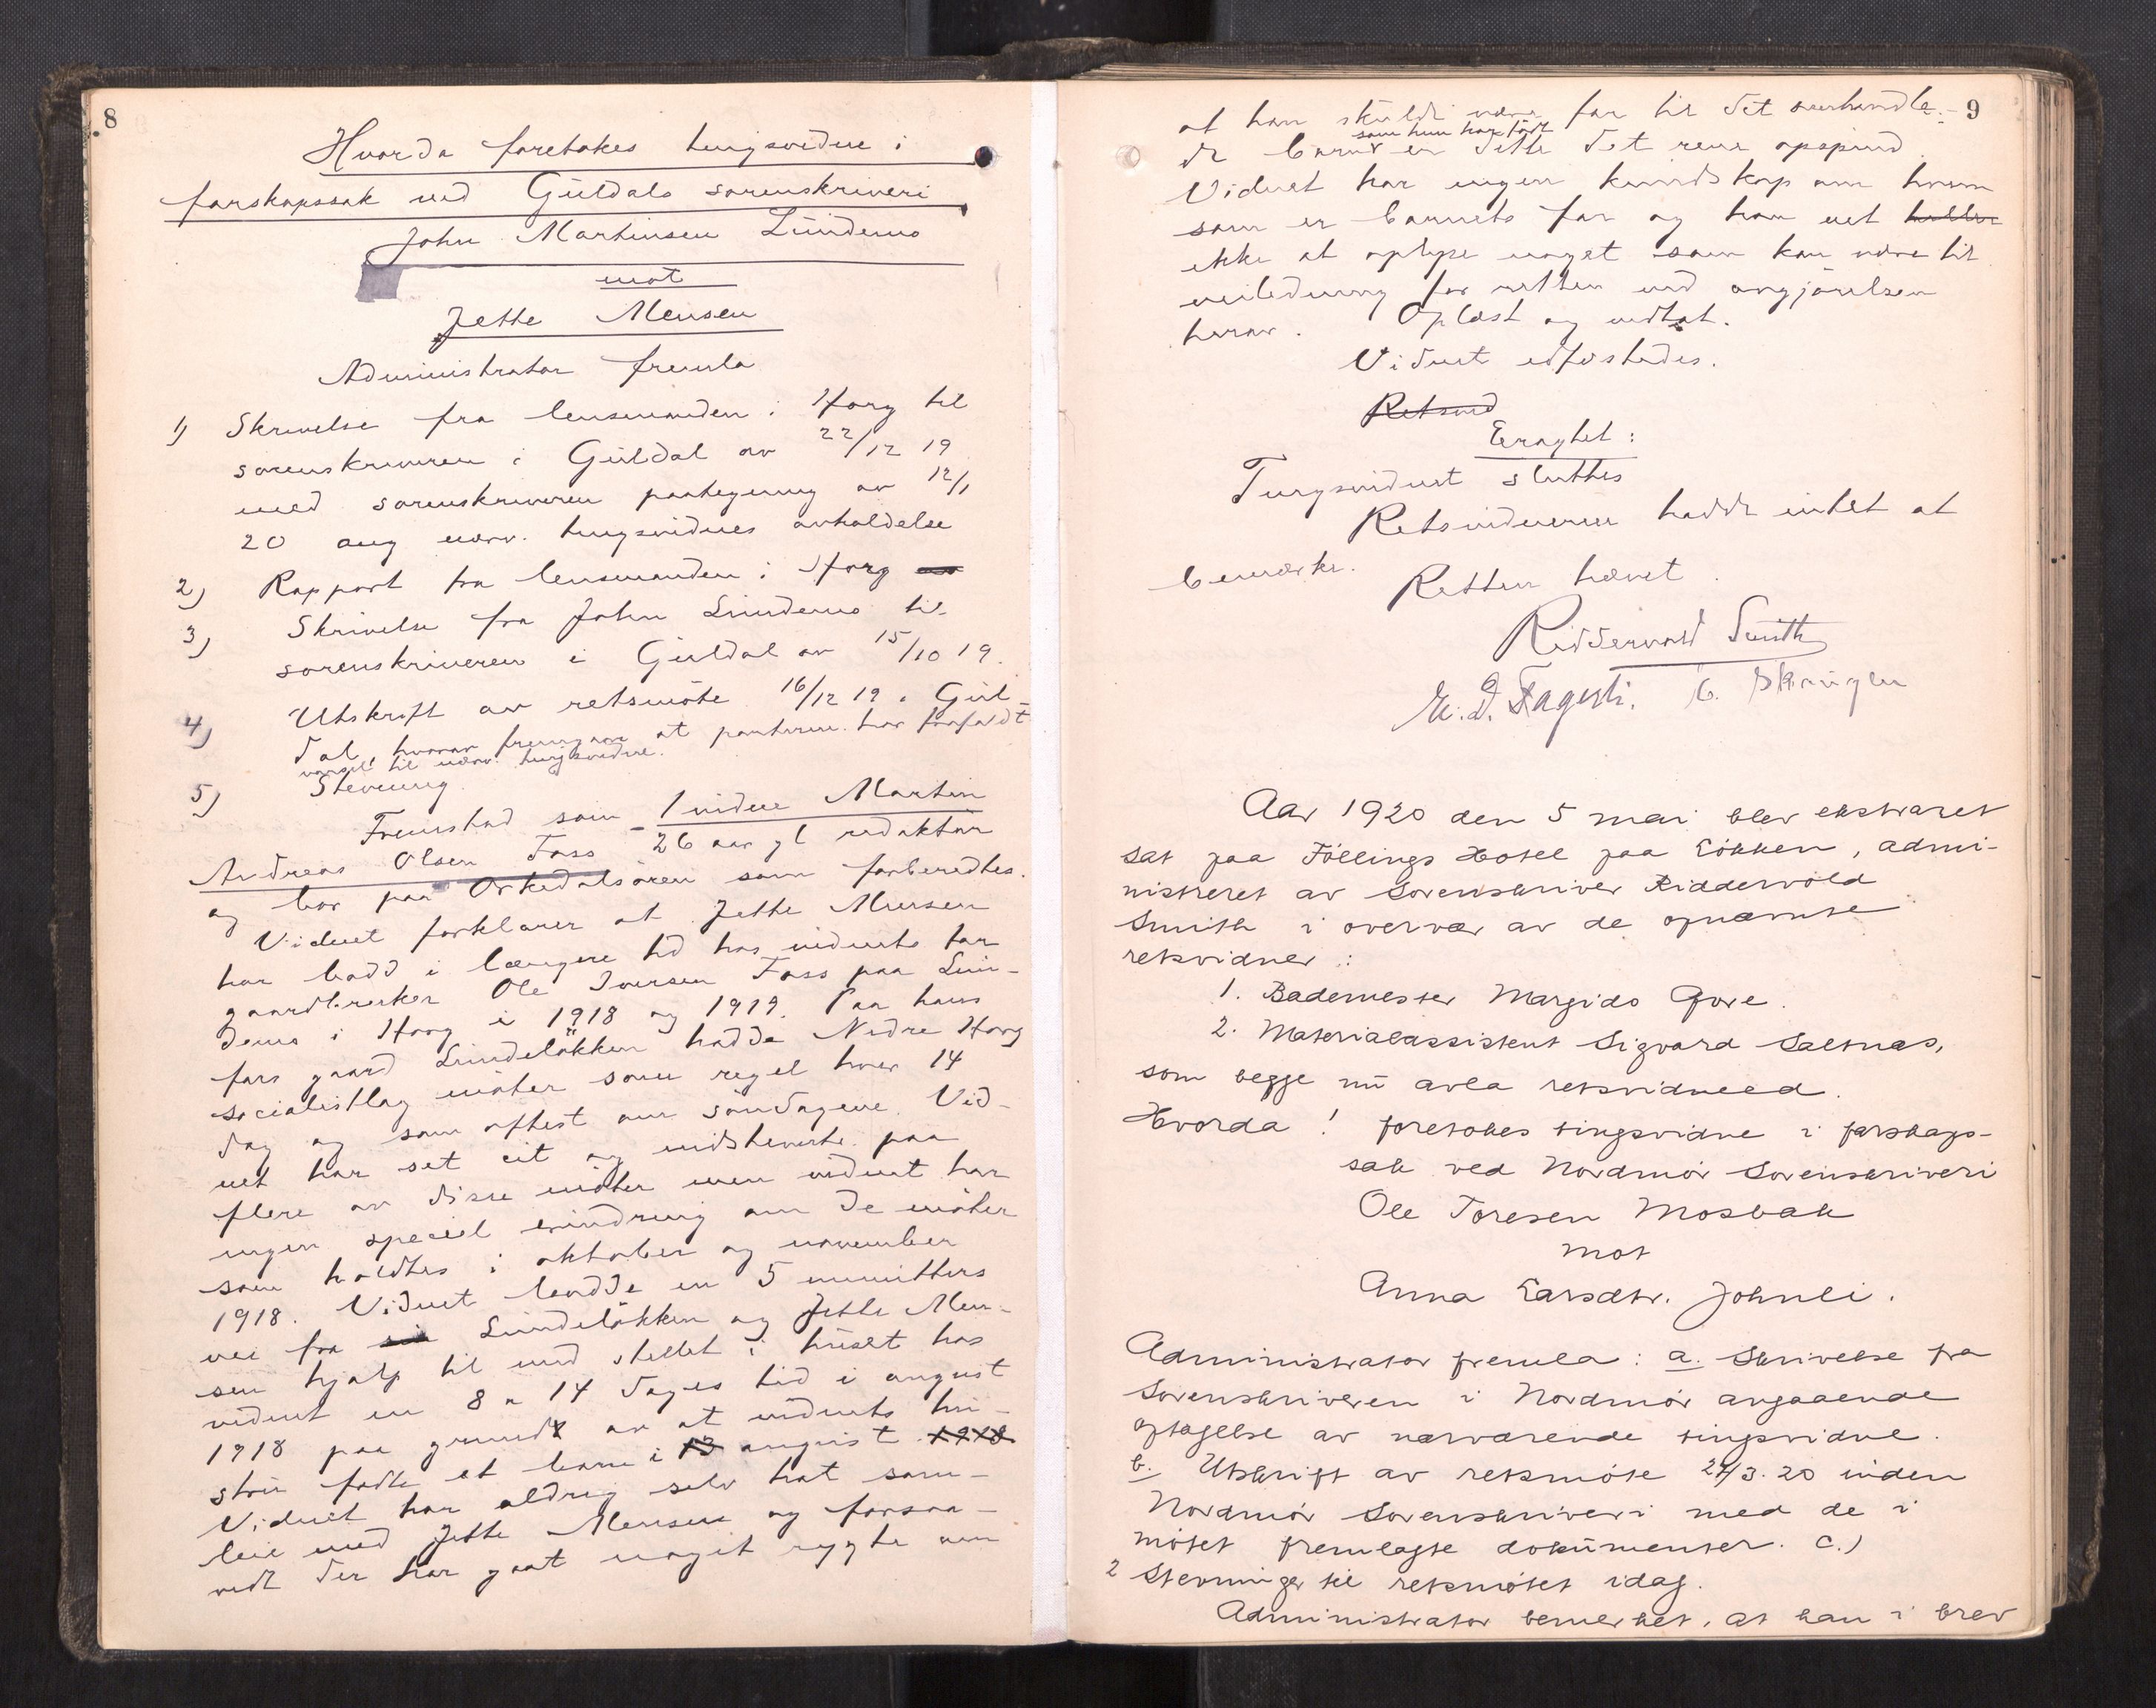 8
Hvorda foretokes tingsvidne i
farskapssak ved Guldals sorenskriveri
John Martinsen Lundemo
mot
Jette Mensen
Administrator fremla
1) Skrivelse fra lensmanden i Horg til
sorenskriveren i Guldal av 22/12 19
med sorenskriveren paategning av 12/1
20 ang nærv. tingsvidnes avholdelse
2) Rapport fra lensmanden i Horg
3) Skrivelse fra John Lundemo til
sorenskriveren i Guldal av 15/10 19.
4) Utskrift av retsmöte 16/12 19 i Gul-
dal, hvorav fremgaar at parterne har frafaldt
varsel til nærv. tingsvidne.
5) Stevning
Fremstod som 1 vidne Martin
Andreas Olsen Foss 26 aar gl redaktör
og bor paa Orkedalsören som forberedtes.
Vidnet forklarer at Jette Mensen
har bodd i længere tid hos vidnets far
gaardbruker Ole Iversen Foss paa Lun-
demo i Horg i 1918 og 1919. Paa hans
fars gaard Lundelökken hadde Nedre Horg
socialistlag möter som regel hver 14
dag og som oftest om söndagene. Vid-
net har set eit og midstevnte paa
flere av disse möter men vidnet har
ingen speciel erindring om de möter
som holdtes i oktober og november
1918. Vidnet bodde en 5 minutters
vei fra Lundelökken og Jette Men-
sen hjalp til med stellet i huset hos
vidnet en 8 a 14 dages tid i august
1918 paa grund av at vidnets hu-
stru födte et barn i 13 august 1918
Vidnet har aldrig selv hat sam-
leie med Jette Mensen og forsaa-
vidt der har gaat noget rygte om
9
at han skulde være far til det omhandle-
de barn som hun har födt er dette det rene opspind
Vidnet har ingen kundskap om hvem
som er barnets far og han vet heller
ikke at oplyse noget som kan være til
veiledning for retten ved avgjörelsen
herav. Oplæst og vedtat.
Vidnet edfæstedes.
Retsvid
Eragtet:
Tingsvidnet sluttes
Retsvidnerne hadde intet at
bemærke.
Retten hævet.
Riddervold Smith
M. O. Fagerli.
Aar 1920 den 5 mai blev ekstraret
sat paa Föllings Hotel paa Lökken, admi-
nistreret av Sorenskriver Riddervold
Smith i overvær av de opnævnte
retsvidner:
1. Bademester Margido Gore.
2. Materialassistent Sigvard Saltnes,
som begge nu avla retsvidneed.
Hvorda! foretokes tingsvidne i farskaps-
sak ved Nordmör Sorenskriveri
Ole Toresen Mosbak
mot
Anna Larsdtr. Johnli.
Administrator fremla: a. Skrivelse fra
Sorenskriveren i Nordmör angaaende
optagelse av nærværende tingsvidne.
b. Utskrift av retsmöte 24/3. 20 inden
Nordmör Sorenskriveri med de i
mötet fremlagte dokumenter. C.)
2 Stevninger til retsmötet idag.
Administrator bemerket, at han i brev